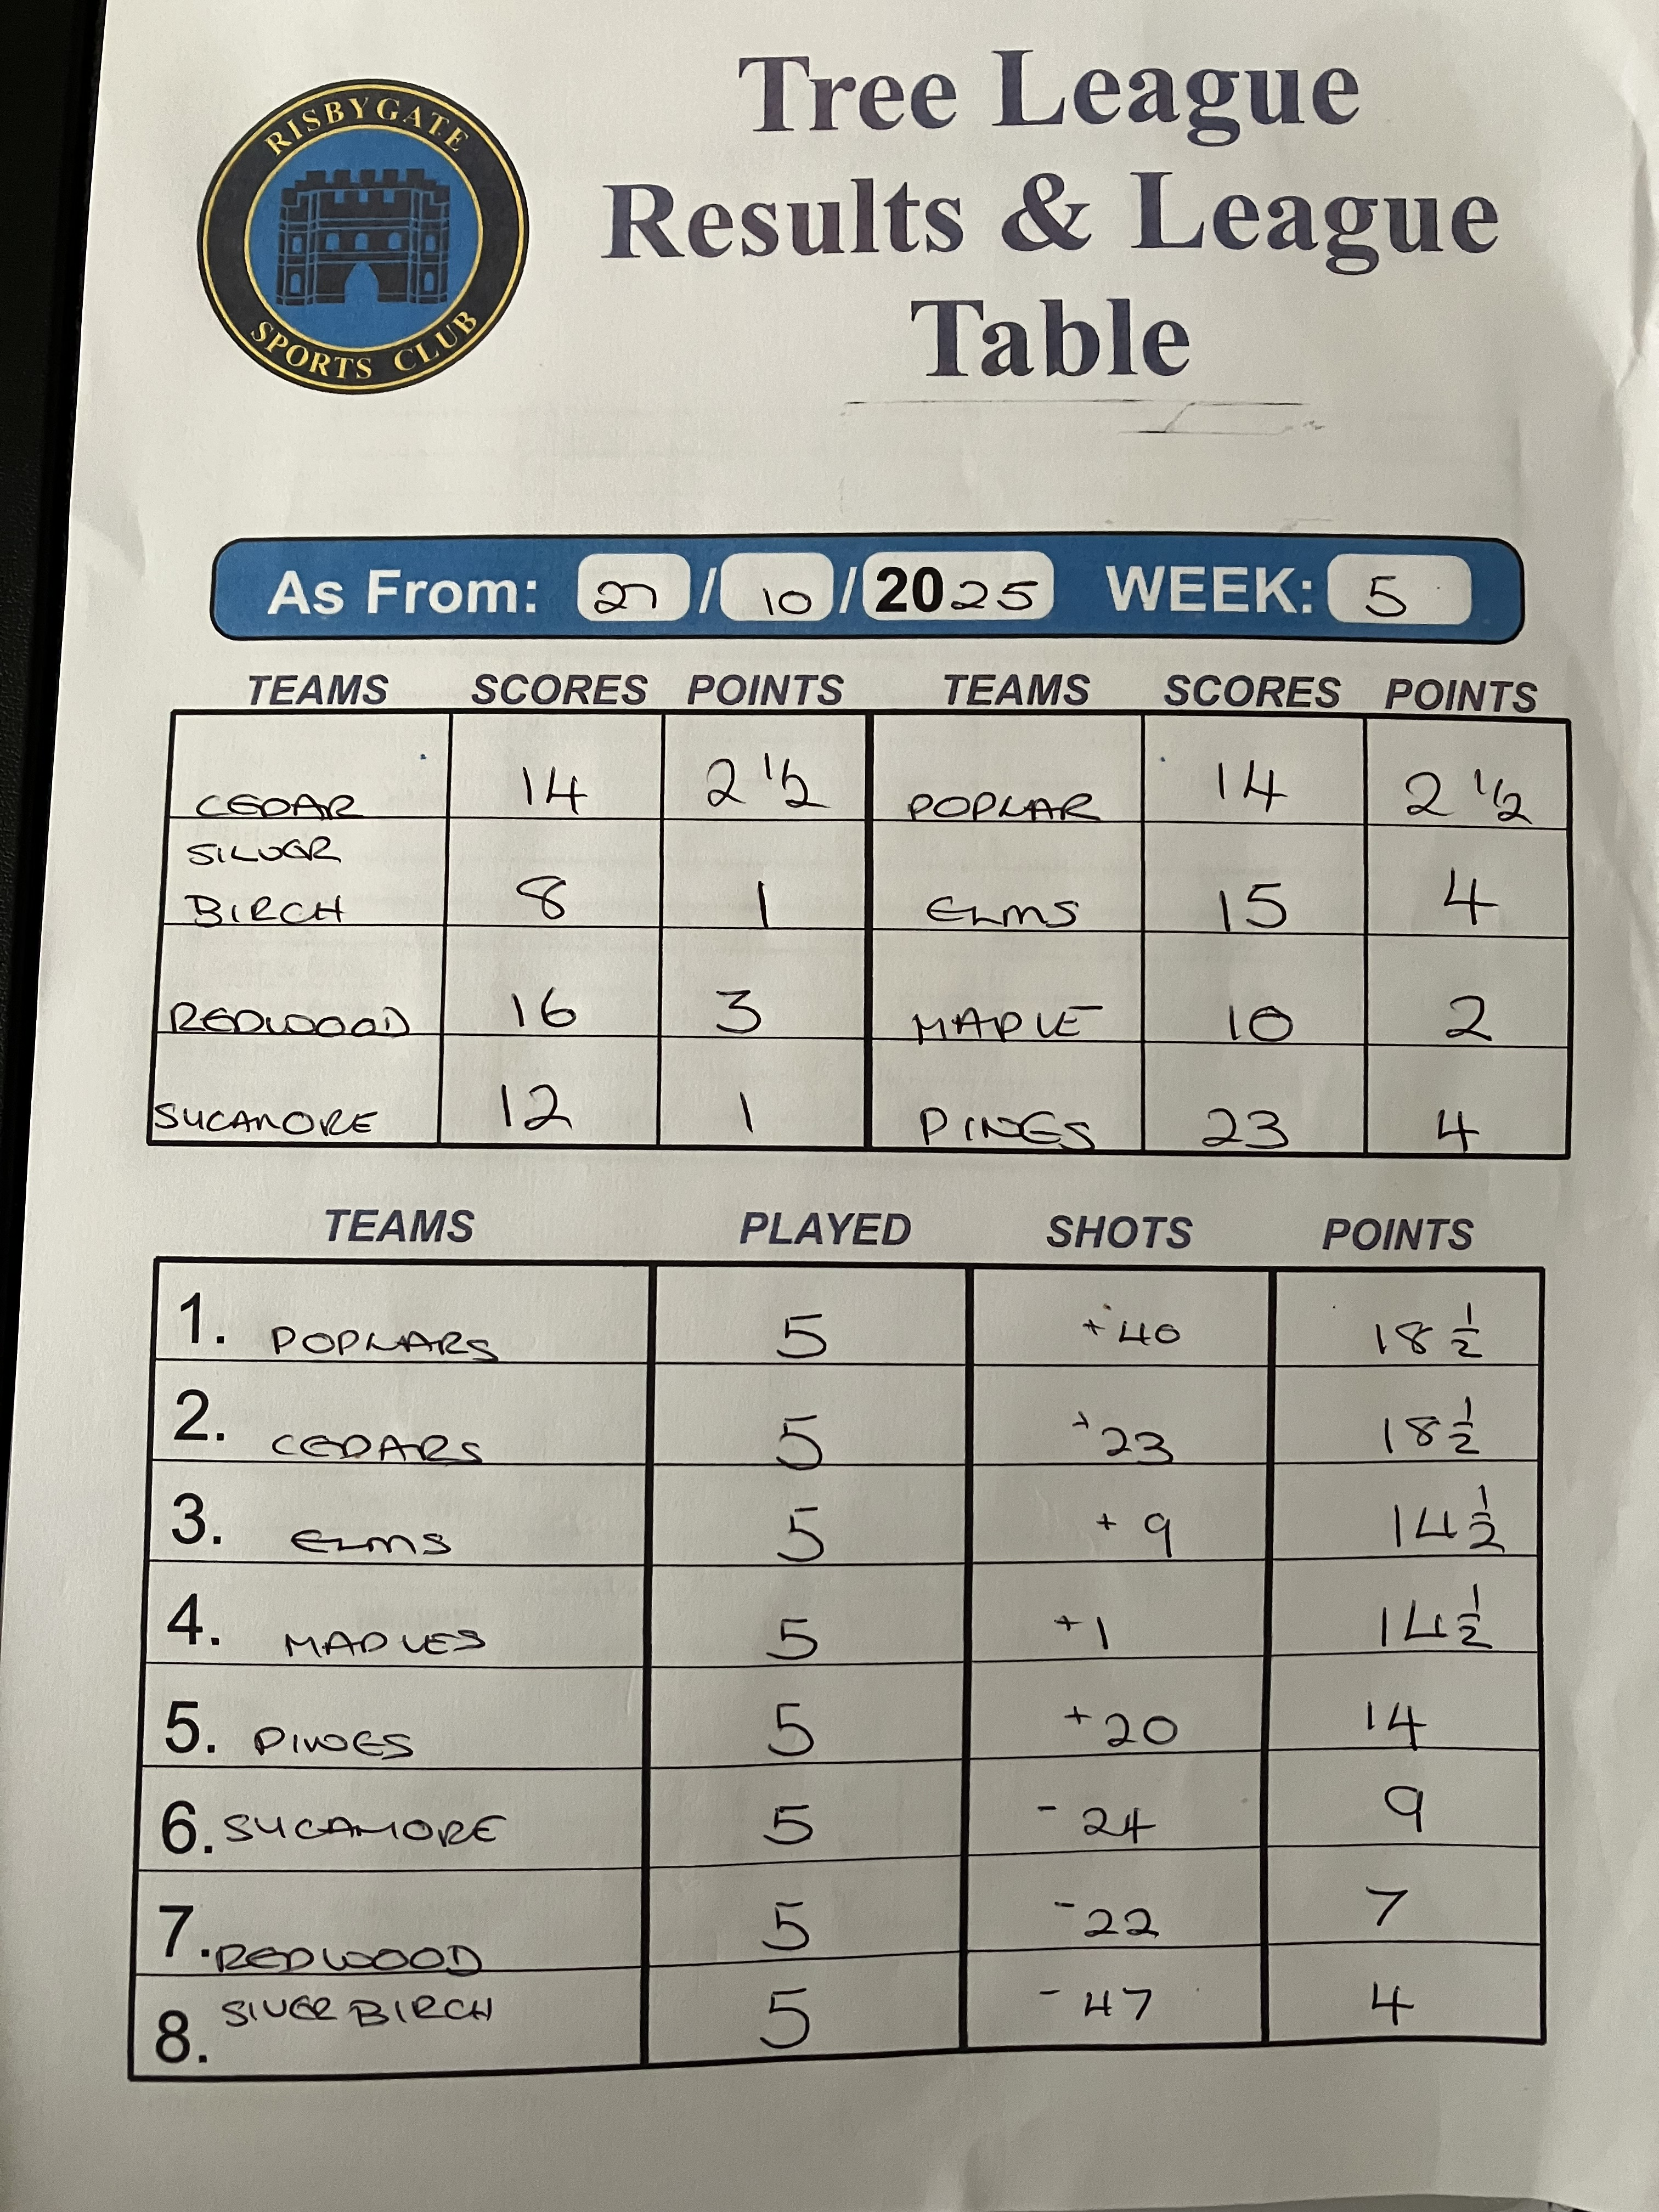 RISBYGATE
SPORTS CLUB
Tree League
Results & League
Table
As From: 27 / 10 / 2025 WEEK: 5
TEAMS SCORES POINTS TEAMS SCORES POINTS
CEDAR 14 2 1/2 POPLAR 14 2 1/2
SILVER
BIRCH 8 1 ELMS 15 4
REDWOOD 16 3 MAPLE 10 2
SYCAMORE 12 1 PINES 23 4
TEAMS PLAYED SHOTS POINTS
1. POPLARS 5 +40 18 1/2
2. CEDARS 5 +23 18 1/2
3. ELMS 5 +9 14 1/2
4. MAPLES 5 +1 14 1/2
5. PINES 5 +20 14
6. SYCAMORE 5 -24 9
7. REDWOOD 5 -22 7
8. SILVER BIRCH 5 -47 4